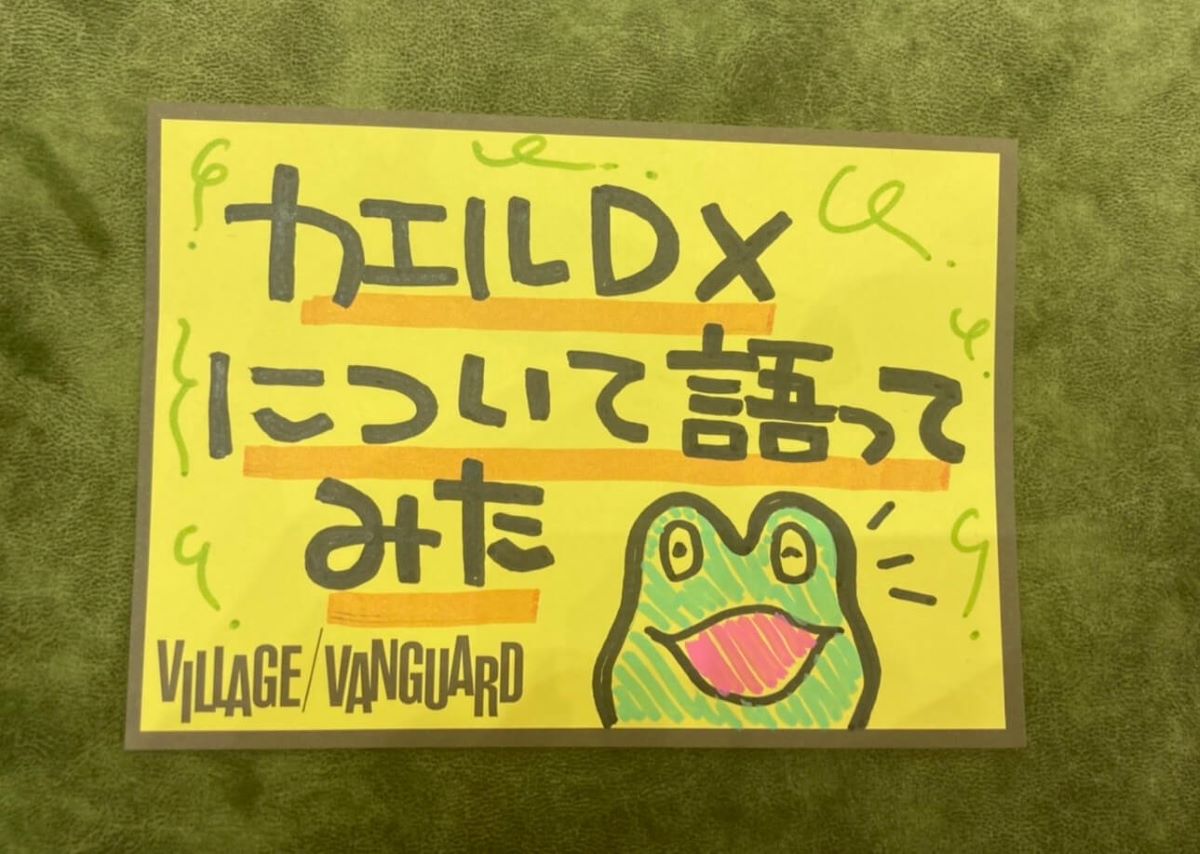 カエルDX
について語って
みた
VILLAGE/VANGUARD